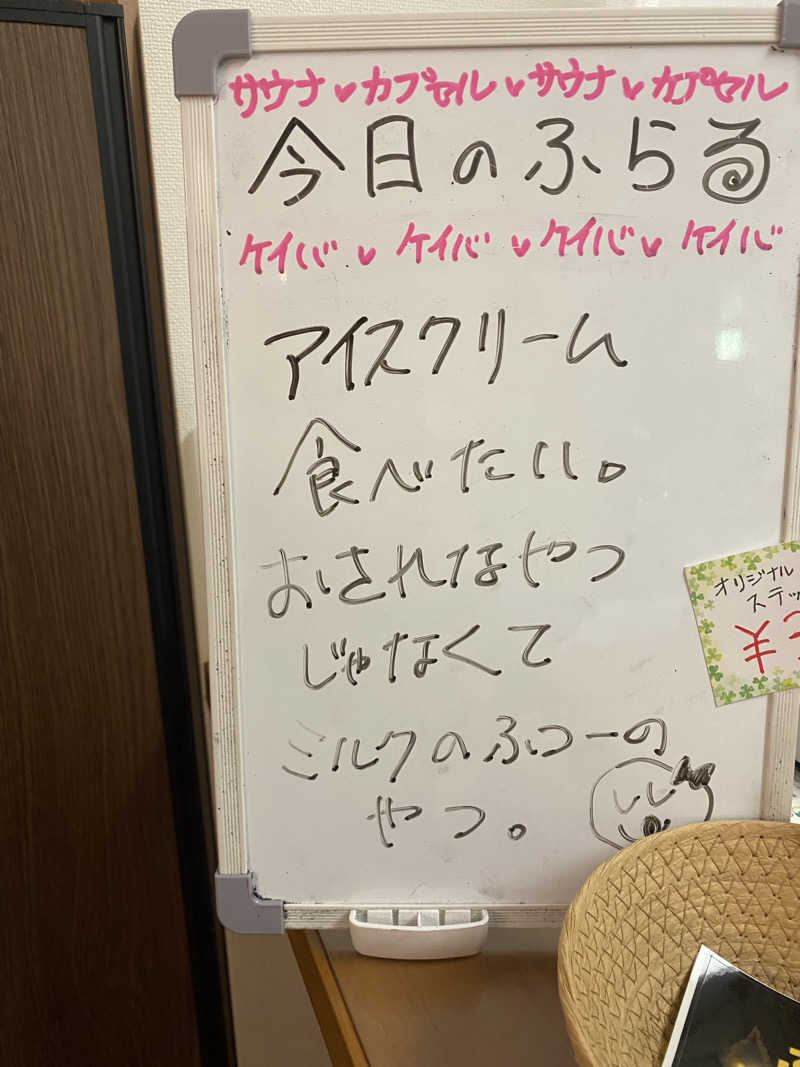 サウナ♥カプセル♥サウナ♥カプセル
今日のふらる
ケイバ♥ケイバ♥ケイバ♥ケイバ
アイスクリーム
食べたい。
おされなやつ
じゃなくて
ミルクのふつーの
やつ。
オリジナル
ステッ
¥